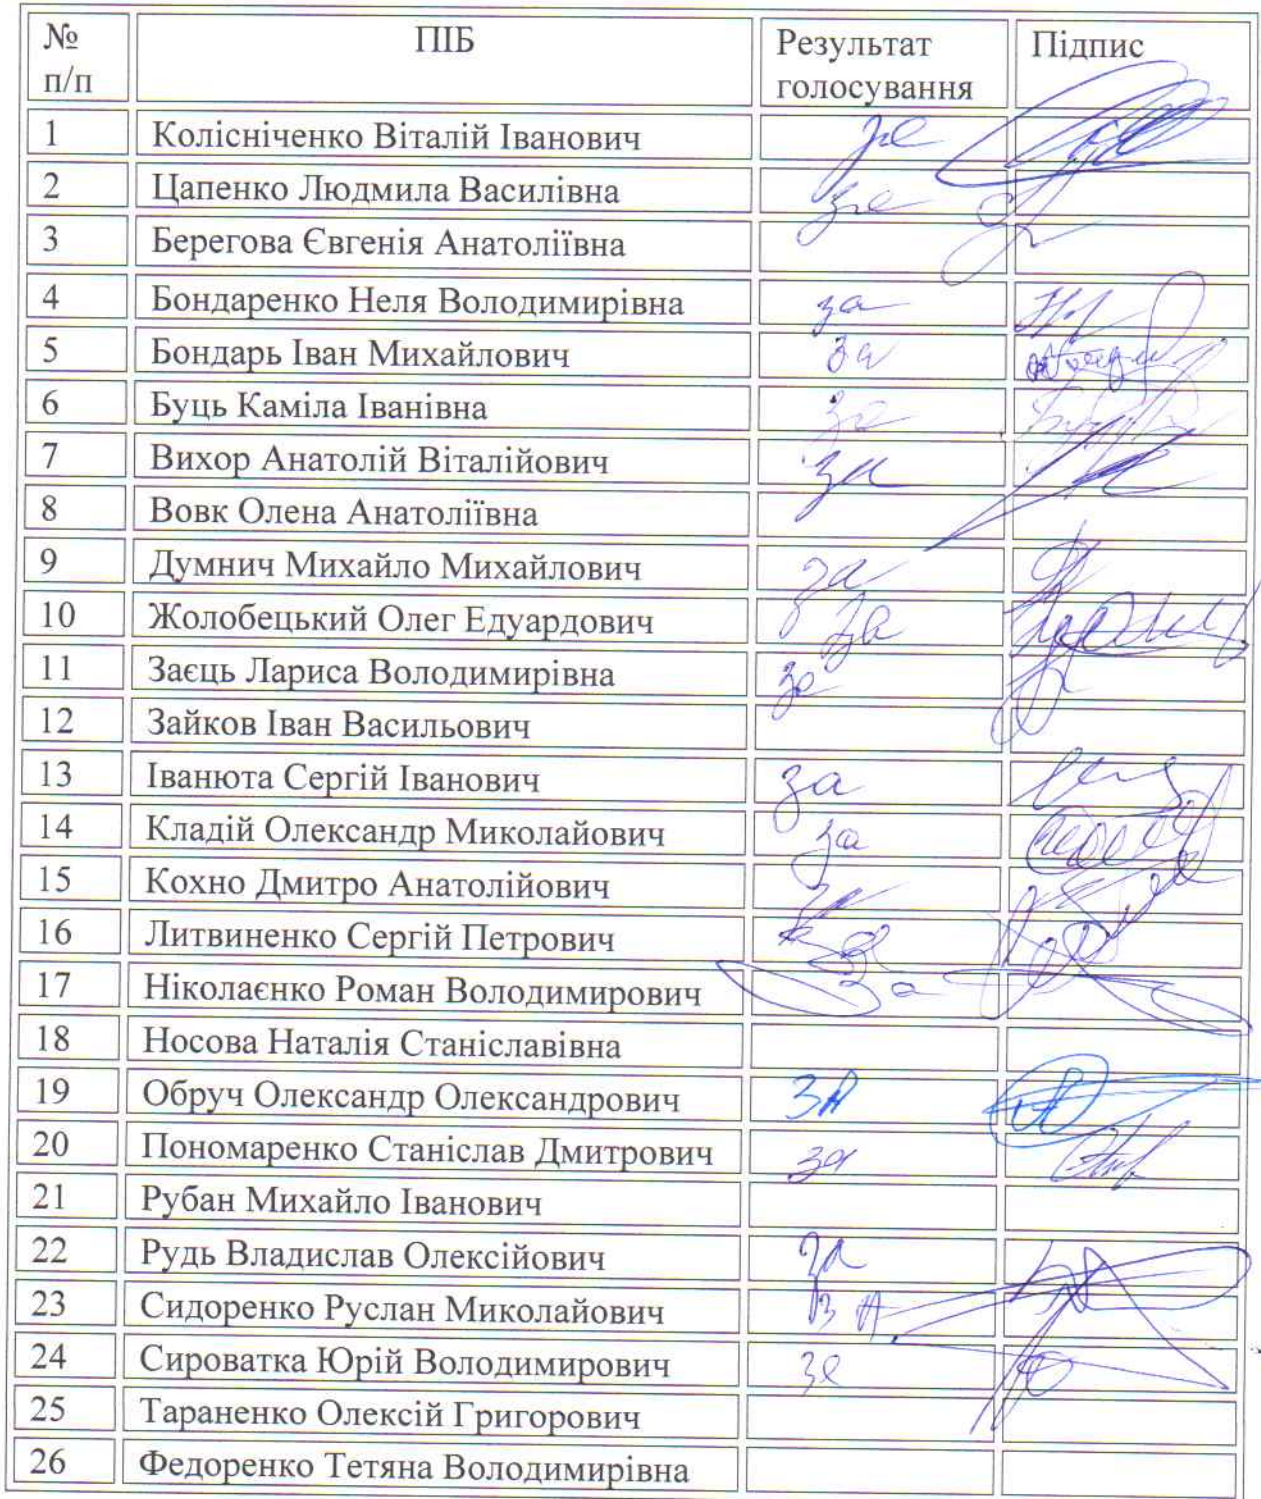 № п/п ПІБ Результат голосування Підпис
1 Колісніченко Віталій Іванович за
2 Цапенко Людмила Василівна за
3 Берегова Євгенія Анатоліївна
4 Бондаренко Неля Володимирівна за
5 Бондарь Іван Михайлович за
6 Буць Каміла Іванівна за
7 Вихор Анатолій Віталійович за
8 Вовк Олена Анатоліївна
9 Думнич Михайло Михайлович за
10 Жолобецький Олег Едуардович за
11 Заєць Лариса Володимирівна за
12 Зайков Іван Васильович
13 Іванюта Сергій Іванович за
14 Кладій Олександр Миколайович за
15 Кохно Дмитро Анатолійович
16 Литвиненко Сергій Петрович
17 Ніколаєнко Роман Володимирович за
18 Носова Наталія Станіславівна
19 Обруч Олександр Олександрович ЗА
20 Пономаренко Станіслав Дмитрович за
21 Рубан Михайло Іванович
22 Рудь Владислав Олексійович за
23 Сидоренко Руслан Миколайович ЗА
24 Сироватка Юрій Володимирович за
25 Тараненко Олексій Григорович
26 Федоренко Тетяна Володимирівна